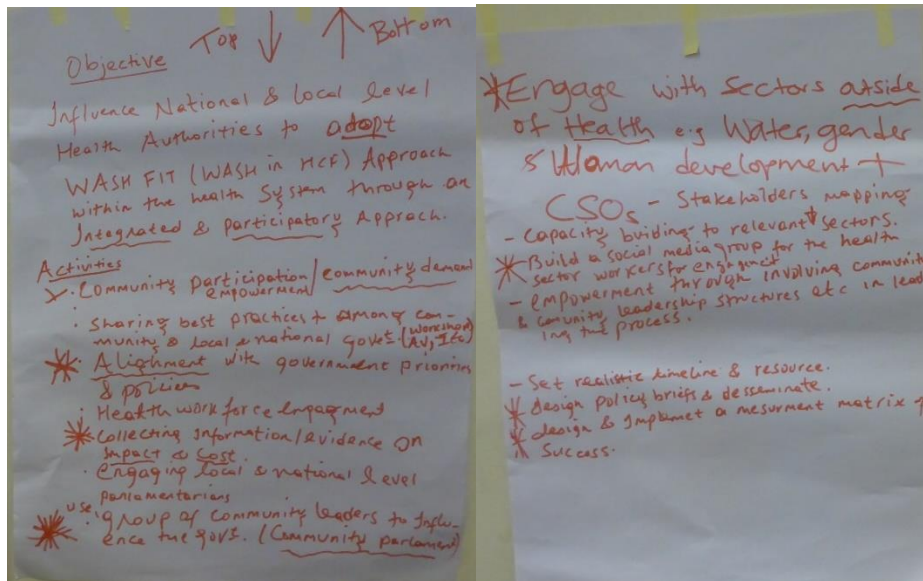 Top ↓ ↑ Bottom
Objective
Influence National & local level
Health Authorities to adopt
WASH FIT (WASH in HCF) Approach
within the health System through an
Integrated & participatory Approch.
Activities
Community participation/community demand
empowerment
. Sharing best practices + among com-
munity & local & national govet. (workshop,
AV, IEC)
* Alighment with government priorities
& policies
. Health work force engagment
* Collecting Information/evidence on
impact & cost.
. engaging local & national level
parlamentarians
* use group of community leaders to Influ-
ence the govs. (Community parlament)
* Engage with Sectors outside
of Health e.g Water, gender
& Human development +
CSOs - Stakeholders mapping
- Capacity buiding to relevant sectors.
* Build a social media group for the health
sector workers for engagmet
- empowerment through involving community
& comunity leadership structures etc in lead
ing the process.
- Set realistic timeline & resource.
* design policy briefs & desseminate.
* design & Implemet a mesurment matrix of
success.